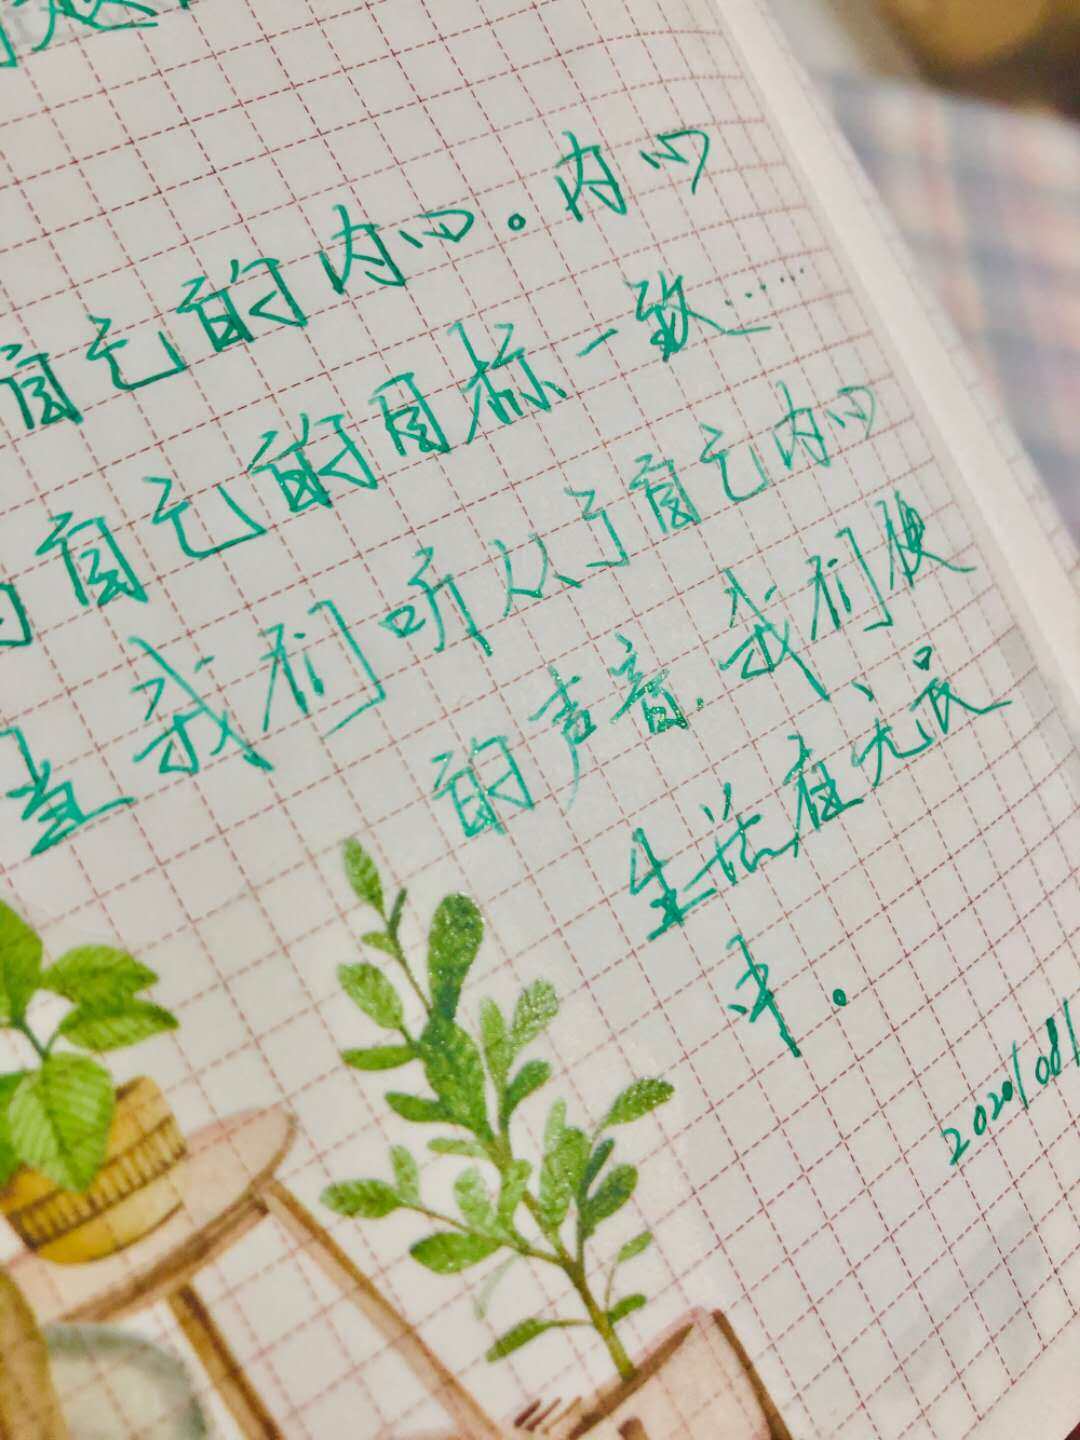 自己的内心。内心
自己的目标一致……
当我们听从了自己内心
的声音，我们便
生活在
中。
2020/08/